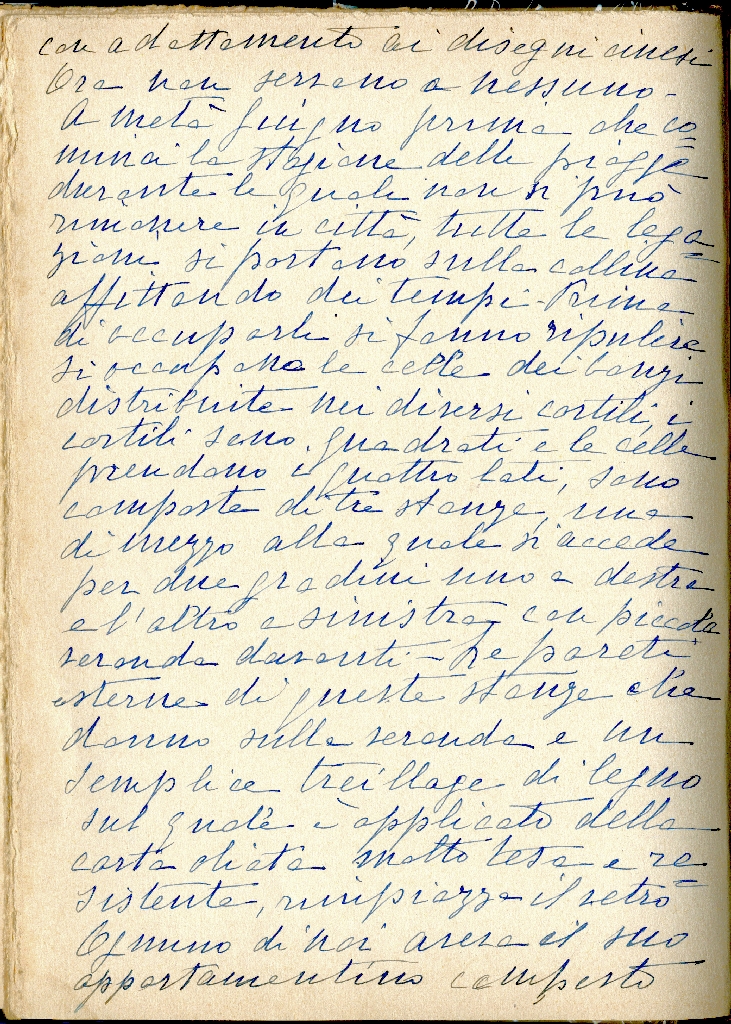 con adattamento ai disegni cinesi
Ora non servono a nessuno -
A metà giugno prima che co=
minci la stagione delle piogge
durante le quali non si può
rimanere in città, tutte le lega=
zioni si portano sulla collina
affittando dei tempi - Prima
di occuparli si fanno ripulire
si occupano le celle dei bonzi
distribuite nei diversi cortili, i
cortili sono quadrati e le celle
prendono i quattro lati, sono
composte di tre stanze, una
di mezzo alla quale si accede
per due gradini uno a destra
e l'altro a sinistra con piccola
veranda davanti - Le pareti
esterne di queste stanze che
danno sulla veranda e un
semplice treillage di legno
sul quale è applicato della
carta oliata molto tesa e re=
sistente, rimpiazza il vetro
Ognuno di noi aveva il suo
appartamentino composto